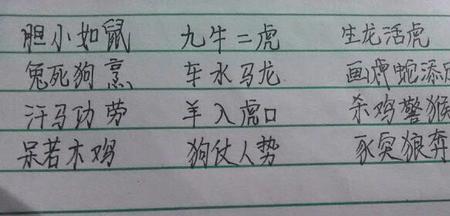 胆小如鼠 九牛二虎 生龙活虎
兔死狗烹 车水马龙 画蛇添足
汗马功劳 羊入虎口 杀鸡警猴
呆若木鸡 狗仗人势 豕突狼奔